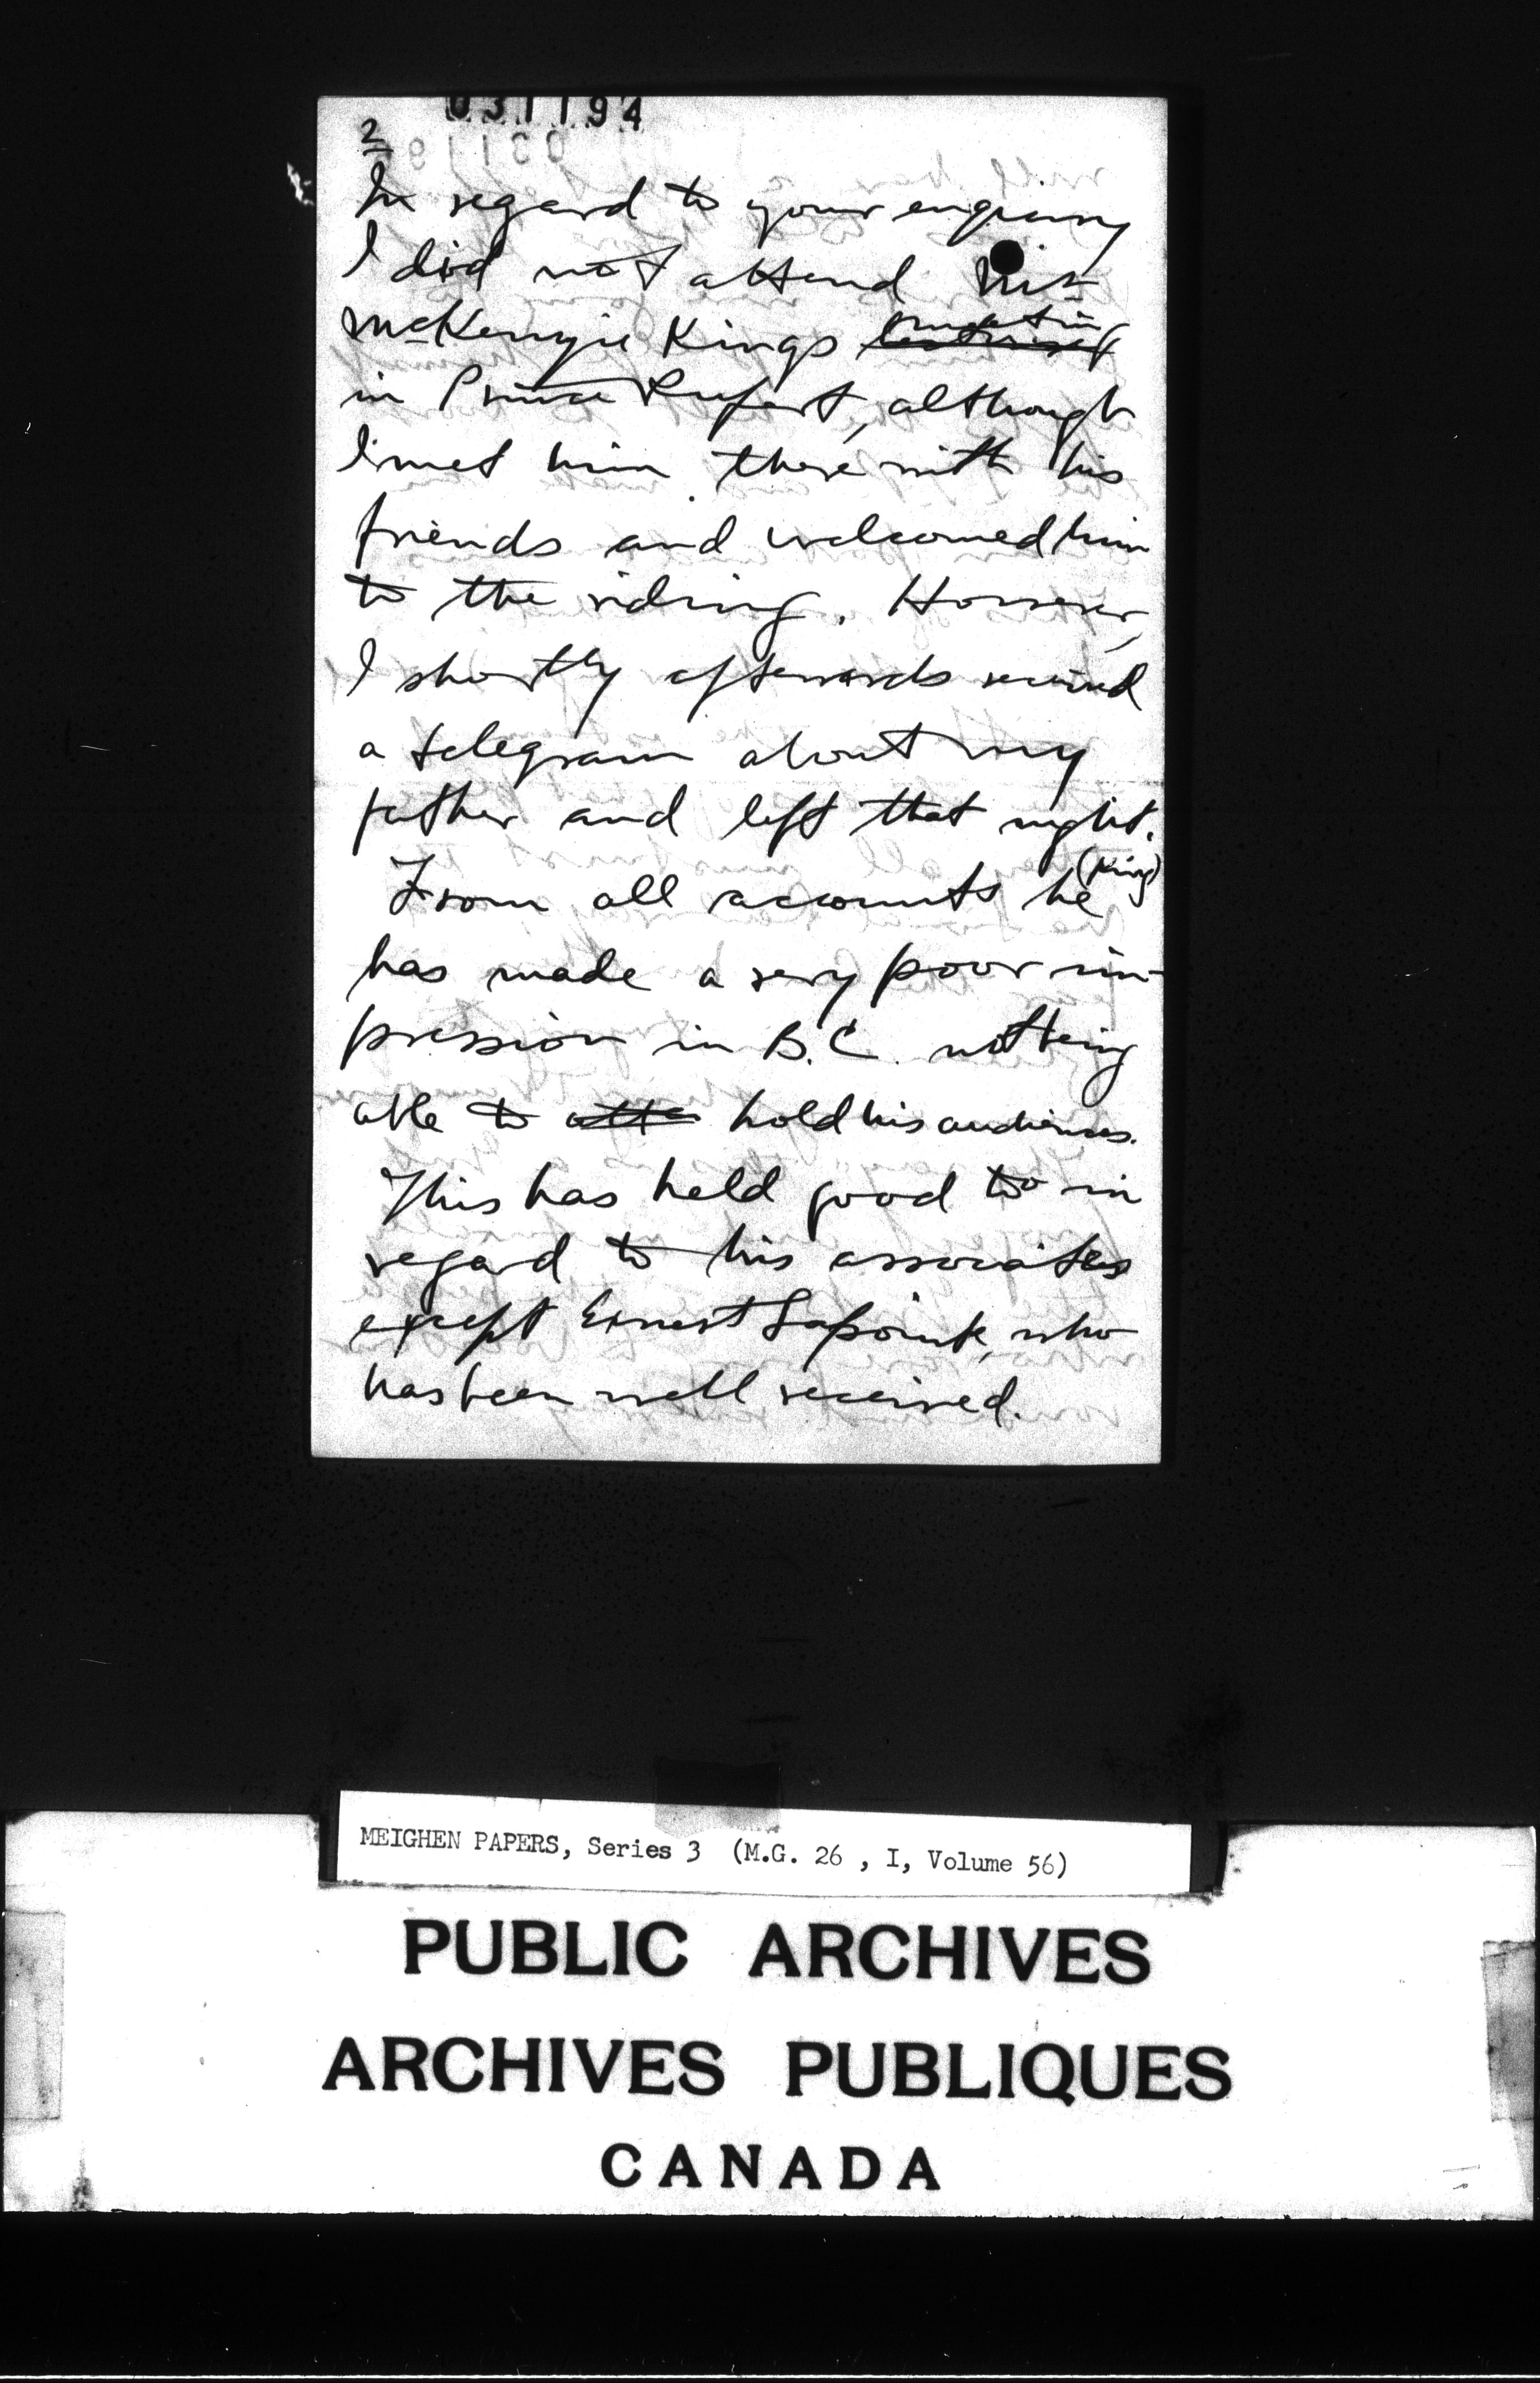 031194
2
In regard to your enquiry
I did not attend Mr
McKenzie Kings meeting
in Prince Rupert, although
I met him there with his
friends and welcomed him
to the riding. However,
I shortly afterwards received
a telegram about my
father and left that night.
From all accounts he (King)
has made a very poor im-
pression in B.C. not being
able to hold his audiences.
This has held good too in
regard to his associates
except Ernest Lapointe, who
has been well received.
MEIGHEN PAPERS, Series 3 (M.G. 26 , I, Volume 56)
PUBLIC ARCHIVES
ARCHIVES PUBLIQUES
CANADA